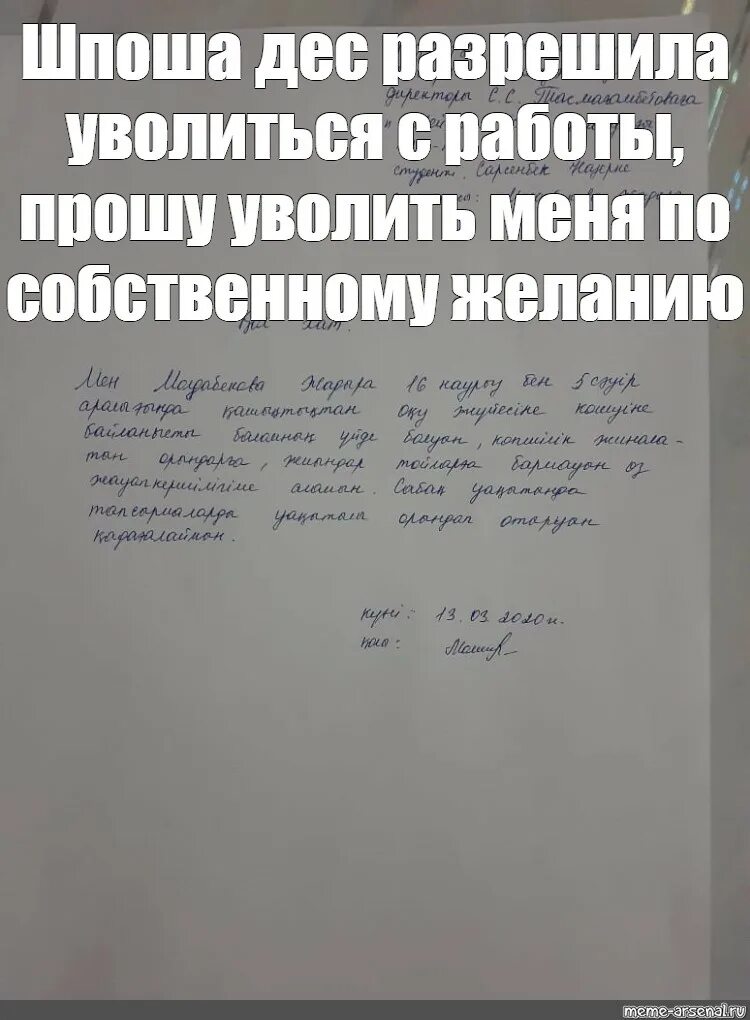 Шпоша дес разрешила
директоры С.С. Тасмагамбетоваға
уволиться с работы,
студенті Сарсенбек
прошу уволить меня по
собственному желанию
хат.
Мен Жадыра 16 наурыз бен 5 сәуір
аралығында қашықтықтан оқу жүйесіне көшуіне
байланысты баламның үйде болуын, көпшілік жинала-
тын орындарға, жиындар тойларға бармауын өз
жауапкершілігіме аламын. Сабақ уақытында
тапсырмаларды уақытылы орындап отыруын
қадағалаймын.
күні: 13.03.2020ж.
қолы:
meme-arsenal.ru